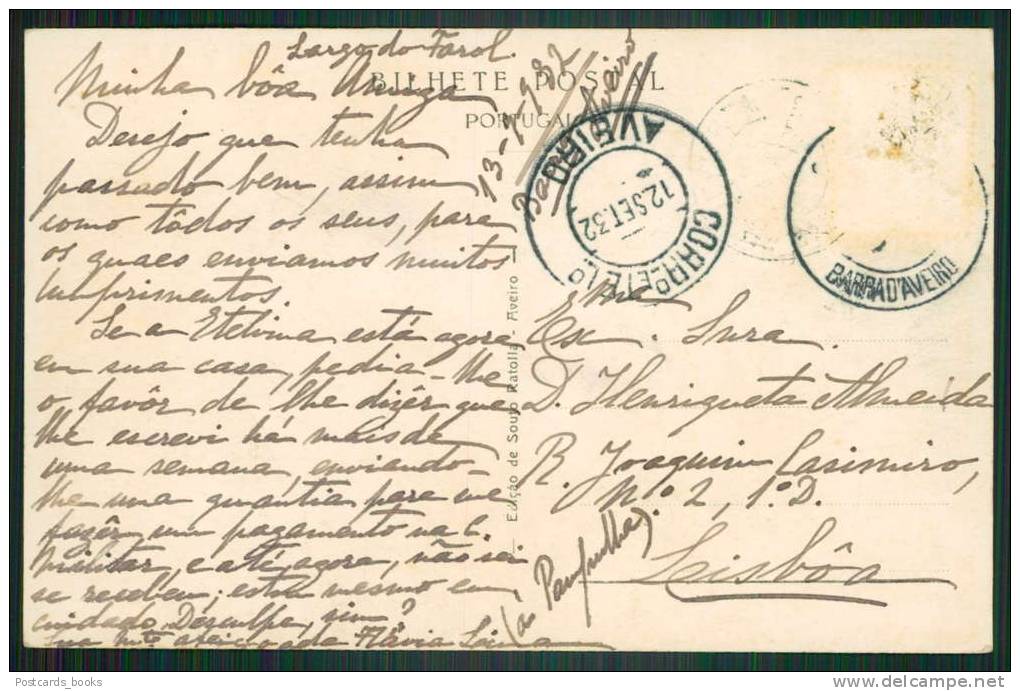 Largo do Farol.
BILHETE POSTAL
PORTUGAL
13-9-932
Barra Aveiro
Minha bôa Amiga
Desejo que tenha
passado bem, assim
como tôdos os seus, para
os quaes enviamos muitos
cumprimentos.
Se a Etelvina está agora
em sua casa, pedia-lhe
o favôr de lhe dizêr que
lhe escrevi há mais de
uma semana, enviando-
lhe uma quantia para me
fazêr um pagamento na C.
Militar, e até agora, não sei
se recebeu; estou mesmo em
cuidado. Desculpe, sim?
Sua mto afeiçoada Flávia
CORREIO E TEL
AVEIRO
12 SET. 32
BARRA D'AVEIRO
Edição de Souto Ratolla - Aveiro
Exma. Snra.
D. Henriqueta Almeida
R. Joaquim Casimiro,
Nº 2, 1º D.
(ás Pampulha)
Lisbôa
Postcards_books
delcampe.net